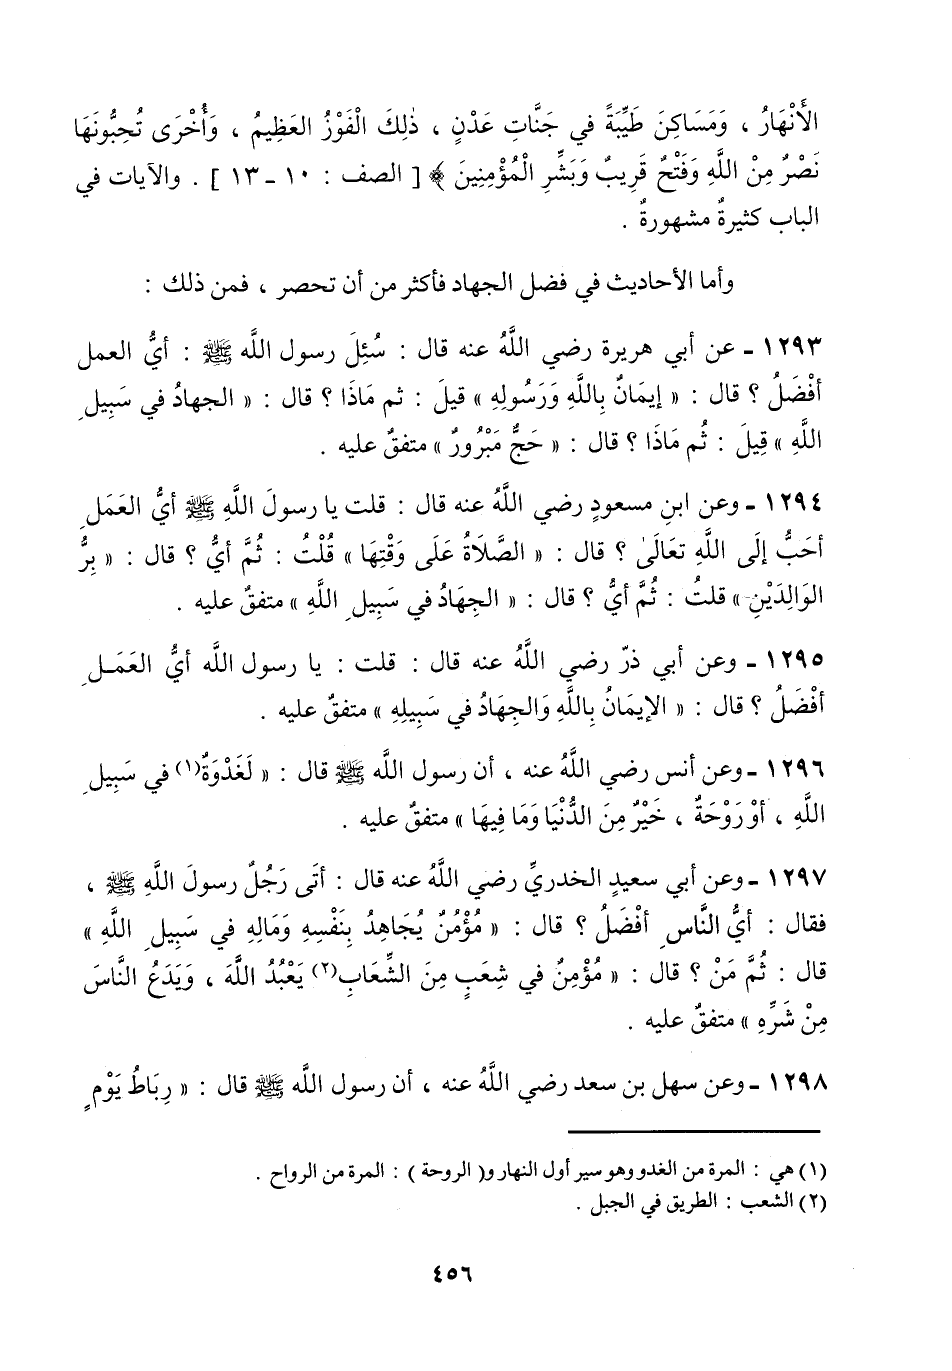 الأَنْهَارُ ، وَمَسَاكِنَ طَيِّبَةً في جَنَّاتِ عَدْنٍ ، ذٰلِكَ الْفَوْزُ العَظِيمُ ، وَأُخْرَى تُحِبُّونَهَا
نَصْرٌ مِنْ اللَّهِ وَفَتْحٌ قَرِيبٌ وَبَشِّرِ الْمُؤْمِنِينَ ﴾ [ الصف : ١٠ ـ ١٣ ] . والآيات في
الباب كثيرةٌ مشهورةٌ .
وأما الأحاديث في فضل الجهاد فأكثر من أن تحصر ، فمن ذلك :
١٢٩٣ ـ عن أبي هريرة رضي اللَّهُ عنه قال : سُئِلَ رسول اللَّه ﷺ : أيُّ العمل
أفْضَلُ ؟ قال : « إيمَانٌ بِاللَّهِ وَرَسُولِهِ » قيلَ : ثم مَاذَا ؟ قال : « الجهادُ في سَبِيلِ
اللَّهِ » قِيلَ : ثُم مَاذَا ؟ قال : « حَجٌّ مَبْرُورٌ » متفقٌ عليه .
١٢٩٤ ـ وعن ابنِ مسعودٍ رضي اللَّهُ عنه قال : قلت يا رسولَ اللَّهِ ﷺ أيُّ العَمَلِ
أحَبُّ إلَى اللَّهِ تَعَالَىٰ ؟ قال : « الصَّلَاةُ عَلَى وَقْتِهَا » قُلْتُ : ثُمَّ أيُّ ؟ قال : « بِرُّ
الوَالِدَيْنِ » قلتُ : ثُمَّ أيُّ ؟ قال : « الجِهَادُ في سَبِيلِ اللَّهِ » متفقٌ عليه .
١٢٩٥ ـ وعن أبي ذرّ رضي اللَّهُ عنه قال : قلت : يا رسول اللَّه أيُّ العَمَلِ
أفْضَلُ ؟ قال : « الإيمَانُ بِاللَّهِ وَالجِهَادُ في سَبِيلِهِ » متفقٌ عليه .
١٢٩٦ ـ وعن أنس رضي اللَّهُ عنه ، أن رسول اللَّه ﷺ قال : « لَغَدْوَةٌ(١) في سَبِيلِ
اللَّهِ ، أوْ رَوْحَةٌ ، خَيْرٌ مِنَ الدُّنْيَا وَمَا فِيهَا » متفقٌ عليه .
١٢٩٧ ـ وعن أبي سعيدٍ الخدريِّ رضي اللَّهُ عنه قال : أتَى رَجُلٌ رسولَ اللَّهِ ﷺ ،
فقال : أيُّ النَّاسِ أفْضَلُ ؟ قال : « مُؤْمُنٌ يُجَاهِدُ بِنَفْسِهِ وَمَالِهِ في سَبِيلِ اللَّهِ »
قال : ثُمَّ مَنْ ؟ قال : « مُؤْمِنٌ في شِعَبٍ مِنَ الشِّعَابِ(٢) يَعْبُدُ اللَّهَ ، وَيَدَعُ النَّاسَ
مِنْ شَرِّهِ » متفقٌ عليه .
١٢٩٨ ـ وعن سهل بن سعد رضي اللَّهُ عنه ، أن رسول اللَّه ﷺ قال : « رِبَاطُ يَوْمٍ
(١) هي : المرة من الغدو وهو سير أول النهار و( الروحة ) : المرة من الرواح .
(٢) الشعب : الطريق في الجبل .
٤٥٦